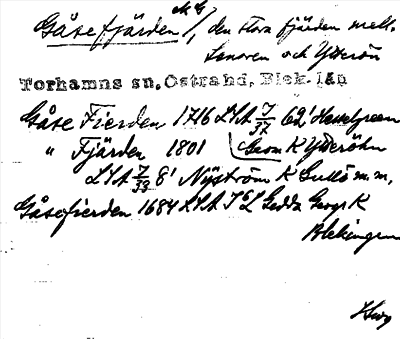 Gåsefjärden /, den stora fjärden mell.
Senoren och Ytterön
Torhamns sn, Östrahd, Blek. län
Gåse Fierden 1716 LSA 7/37 62' Hesselgreen
" Fjärden 1801 Geom K Ytteröhn
LSA 7/33 8' Nyström K m.m.
Gåsefierden 1684 LSA Gedda Geogr K
Blekingen